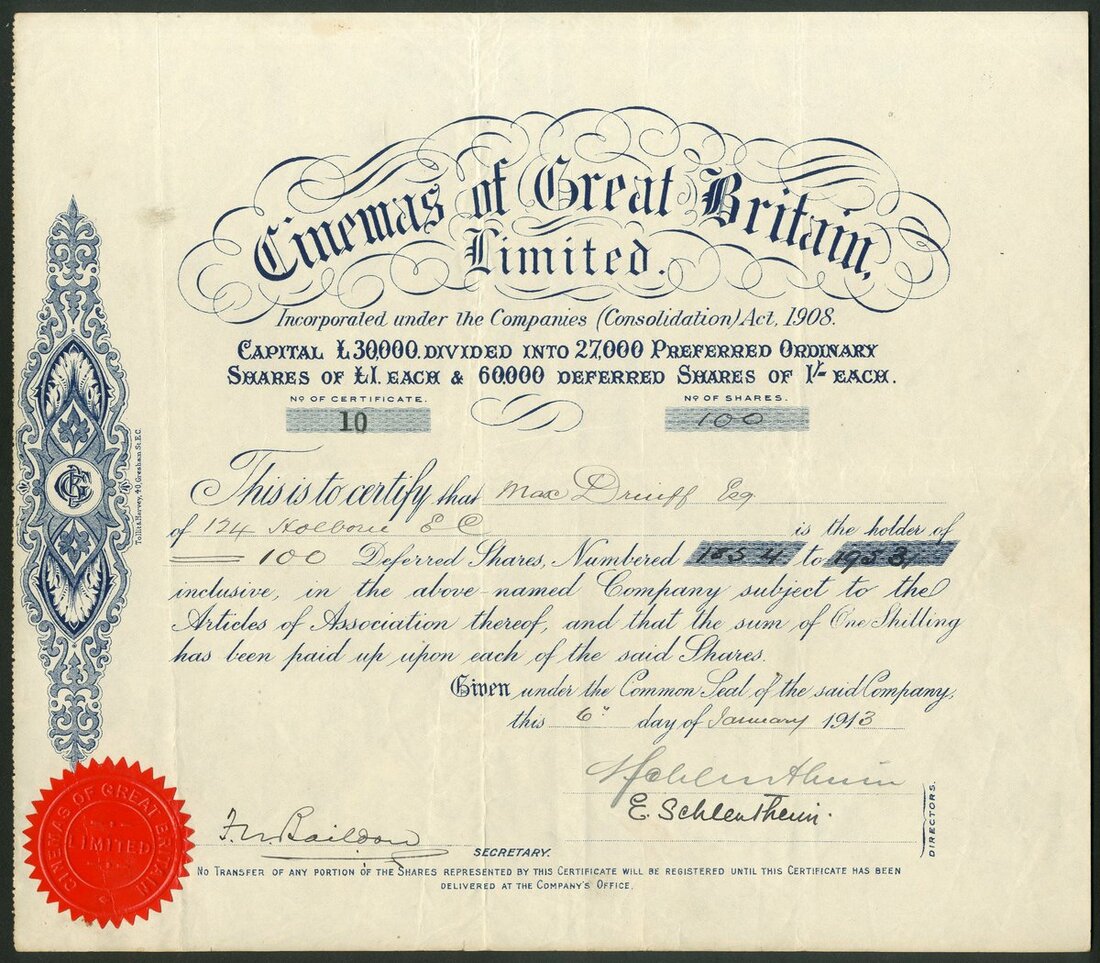 Cinemas of Great Britain,
Limited.
Incorporated under the Companies (Consolidation) Act, 1908.
CAPITAL £30,000. DIVIDED INTO 27,000 PREFERRED ORDINARY
SHARES OF £1. EACH & 60,000 DEFERRED SHARES OF 1/- EACH.
No OF CERTIFICATE.
No OF SHARES.
10
100
This is to certify that Max Druiff Esq
of 124 Holborn E C is the holder of
100 Deferred Shares, Numbered 1854 to 1953,
inclusive, in the above-named Company subject to the
Articles of Association thereof, and that the sum of One Shilling
has been paid up upon each of the said Shares.
Given under the Common Seal of the said Company,
this 6th day of January 1913
E. Schlentheim.
DIRECTORS.
F. W. Baildon
SECRETARY.
No TRANSFER OF ANY PORTION OF THE SHARES REPRESENTED BY THIS CERTIFICATE WILL BE REGISTERED UNTIL THIS CERTIFICATE HAS BEEN
DELIVERED AT THE COMPANY'S OFFICE.
CGB
Tollit & Harvey, 40, Gresham St. E.C.
CINEMAS OF GREAT BRITAIN
LIMITED